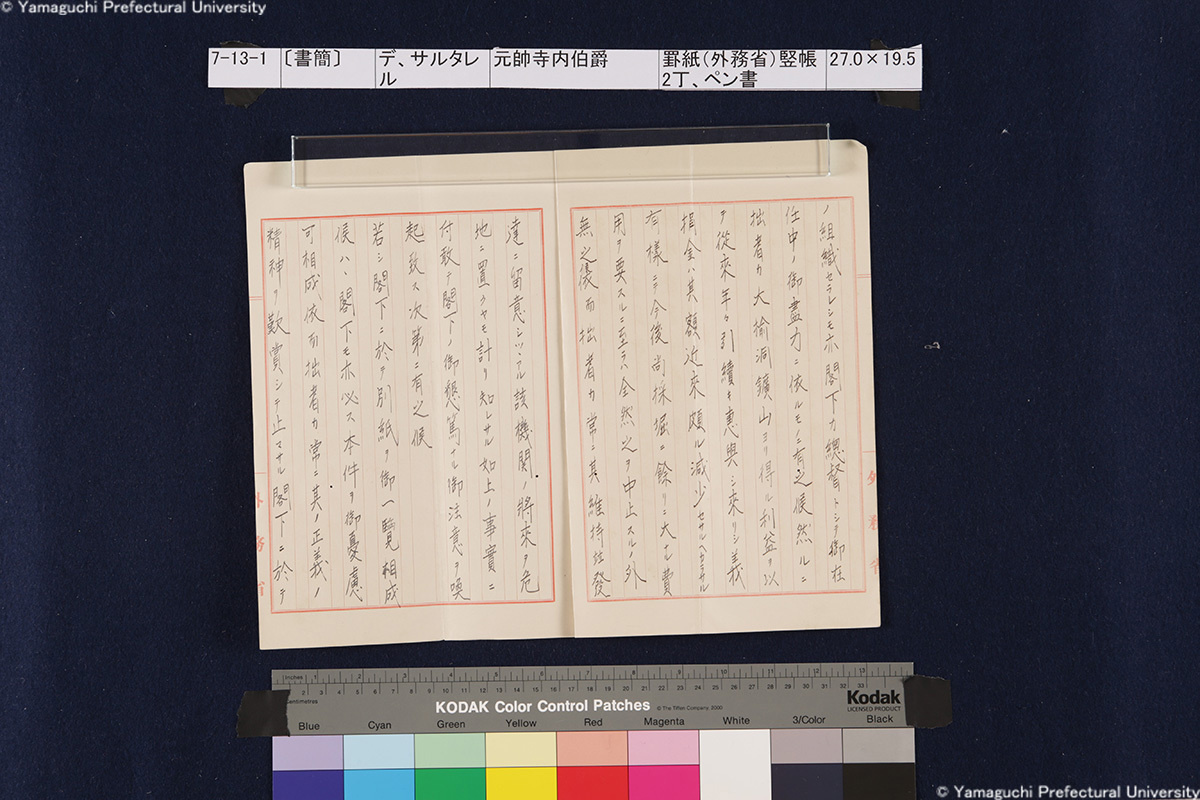 © Yamaguchi Prefectural University
7-13-1
〔書簡〕
デ、サルタレ
ル
元帥寺内伯爵
罫紙(外務省)竪帳
2丁、ペン書
27.0×19.5
ノ組織セラレシモ亦閣下カ總督トシテ御在
任中ノ御盡力ニ依ルモノニ有之候然ルニ
拙者カ大楡洞鑛山ヨリ得ル利益ヲ以
テ從來年々引續キ惠與シ來リシ義
捐金ハ其額近來頗ル減少セサルヘカラサル
有樣ニテ今後尚採堀ニ餘リニ大ナル費
用ヲ要スルニ至ラハ全然之ヲ中止スルノ外
無之候而拙者カ常ニ其維持竝發
達ニ留意シツヽアル該機関ノ將來ヲ危
地ニ置クヤモ計リ知レサル如上ノ事實ニ
付敢テ閣下ノ御懇篤ナル御注意ヲ喚
起致ス次第ニ有之候
若シ閣下ニ於テ別紙ヲ御一覽相成
候ハヽ閣下モ亦必ス本件ヲ御憂慮
可相成、依而拙者カ常ニ其ノ正義ノ
精神ヲ歎賞シテ止マサル閣下ニ於テ
外務省
外務省
Inches
Centimetres
KODAK Color Control Patches
© The Tiffen Company, 2000
Kodak
LICENSED PRODUCT
Blue
Cyan
Green
Yellow
Red
Magenta
White
3/Color
Black
© Yamaguchi Prefectural University